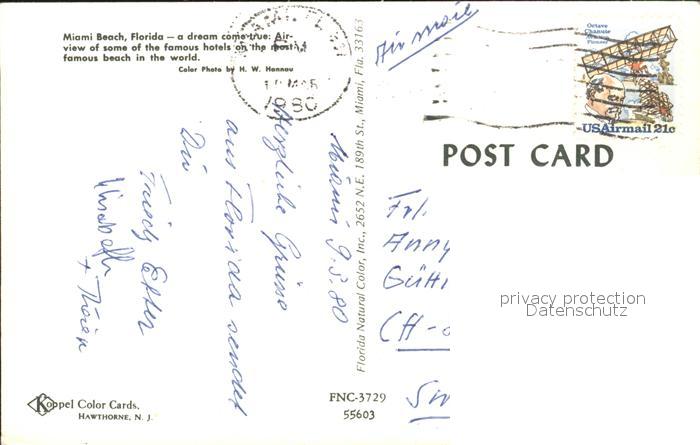 Miami Beach, Florida — a dream come true: Air-
view of some of the famous hotels on the most
famous beach in the world.
Color Photo by H. W. Hannau
1980
Air mail
Octave
Chanute
Pioneer
USAirmail 21c
POST CARD
Miami 9.3.80
Herzliche Grüsse
aus Florida sendet
Dir
+
Florida Natural Color, Inc., 2652 N.E. 189th St., Miami, Fla. 33163
Frl.
Anny
CH-
privacy protection
Datenschutz
Koppel Color Cards.
HAWTHORNE, N. J.
FNC-3729
55603